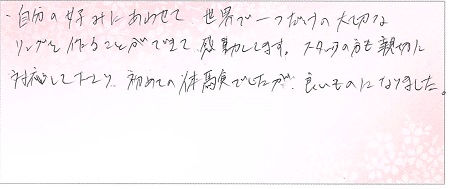 ・自分の好みにあわせて、世界で一つだけの大切な
リングを作ることができて感動します。スタッフの方も親切に
対応して下さり、初めての体験でしたが、良いものになりました。